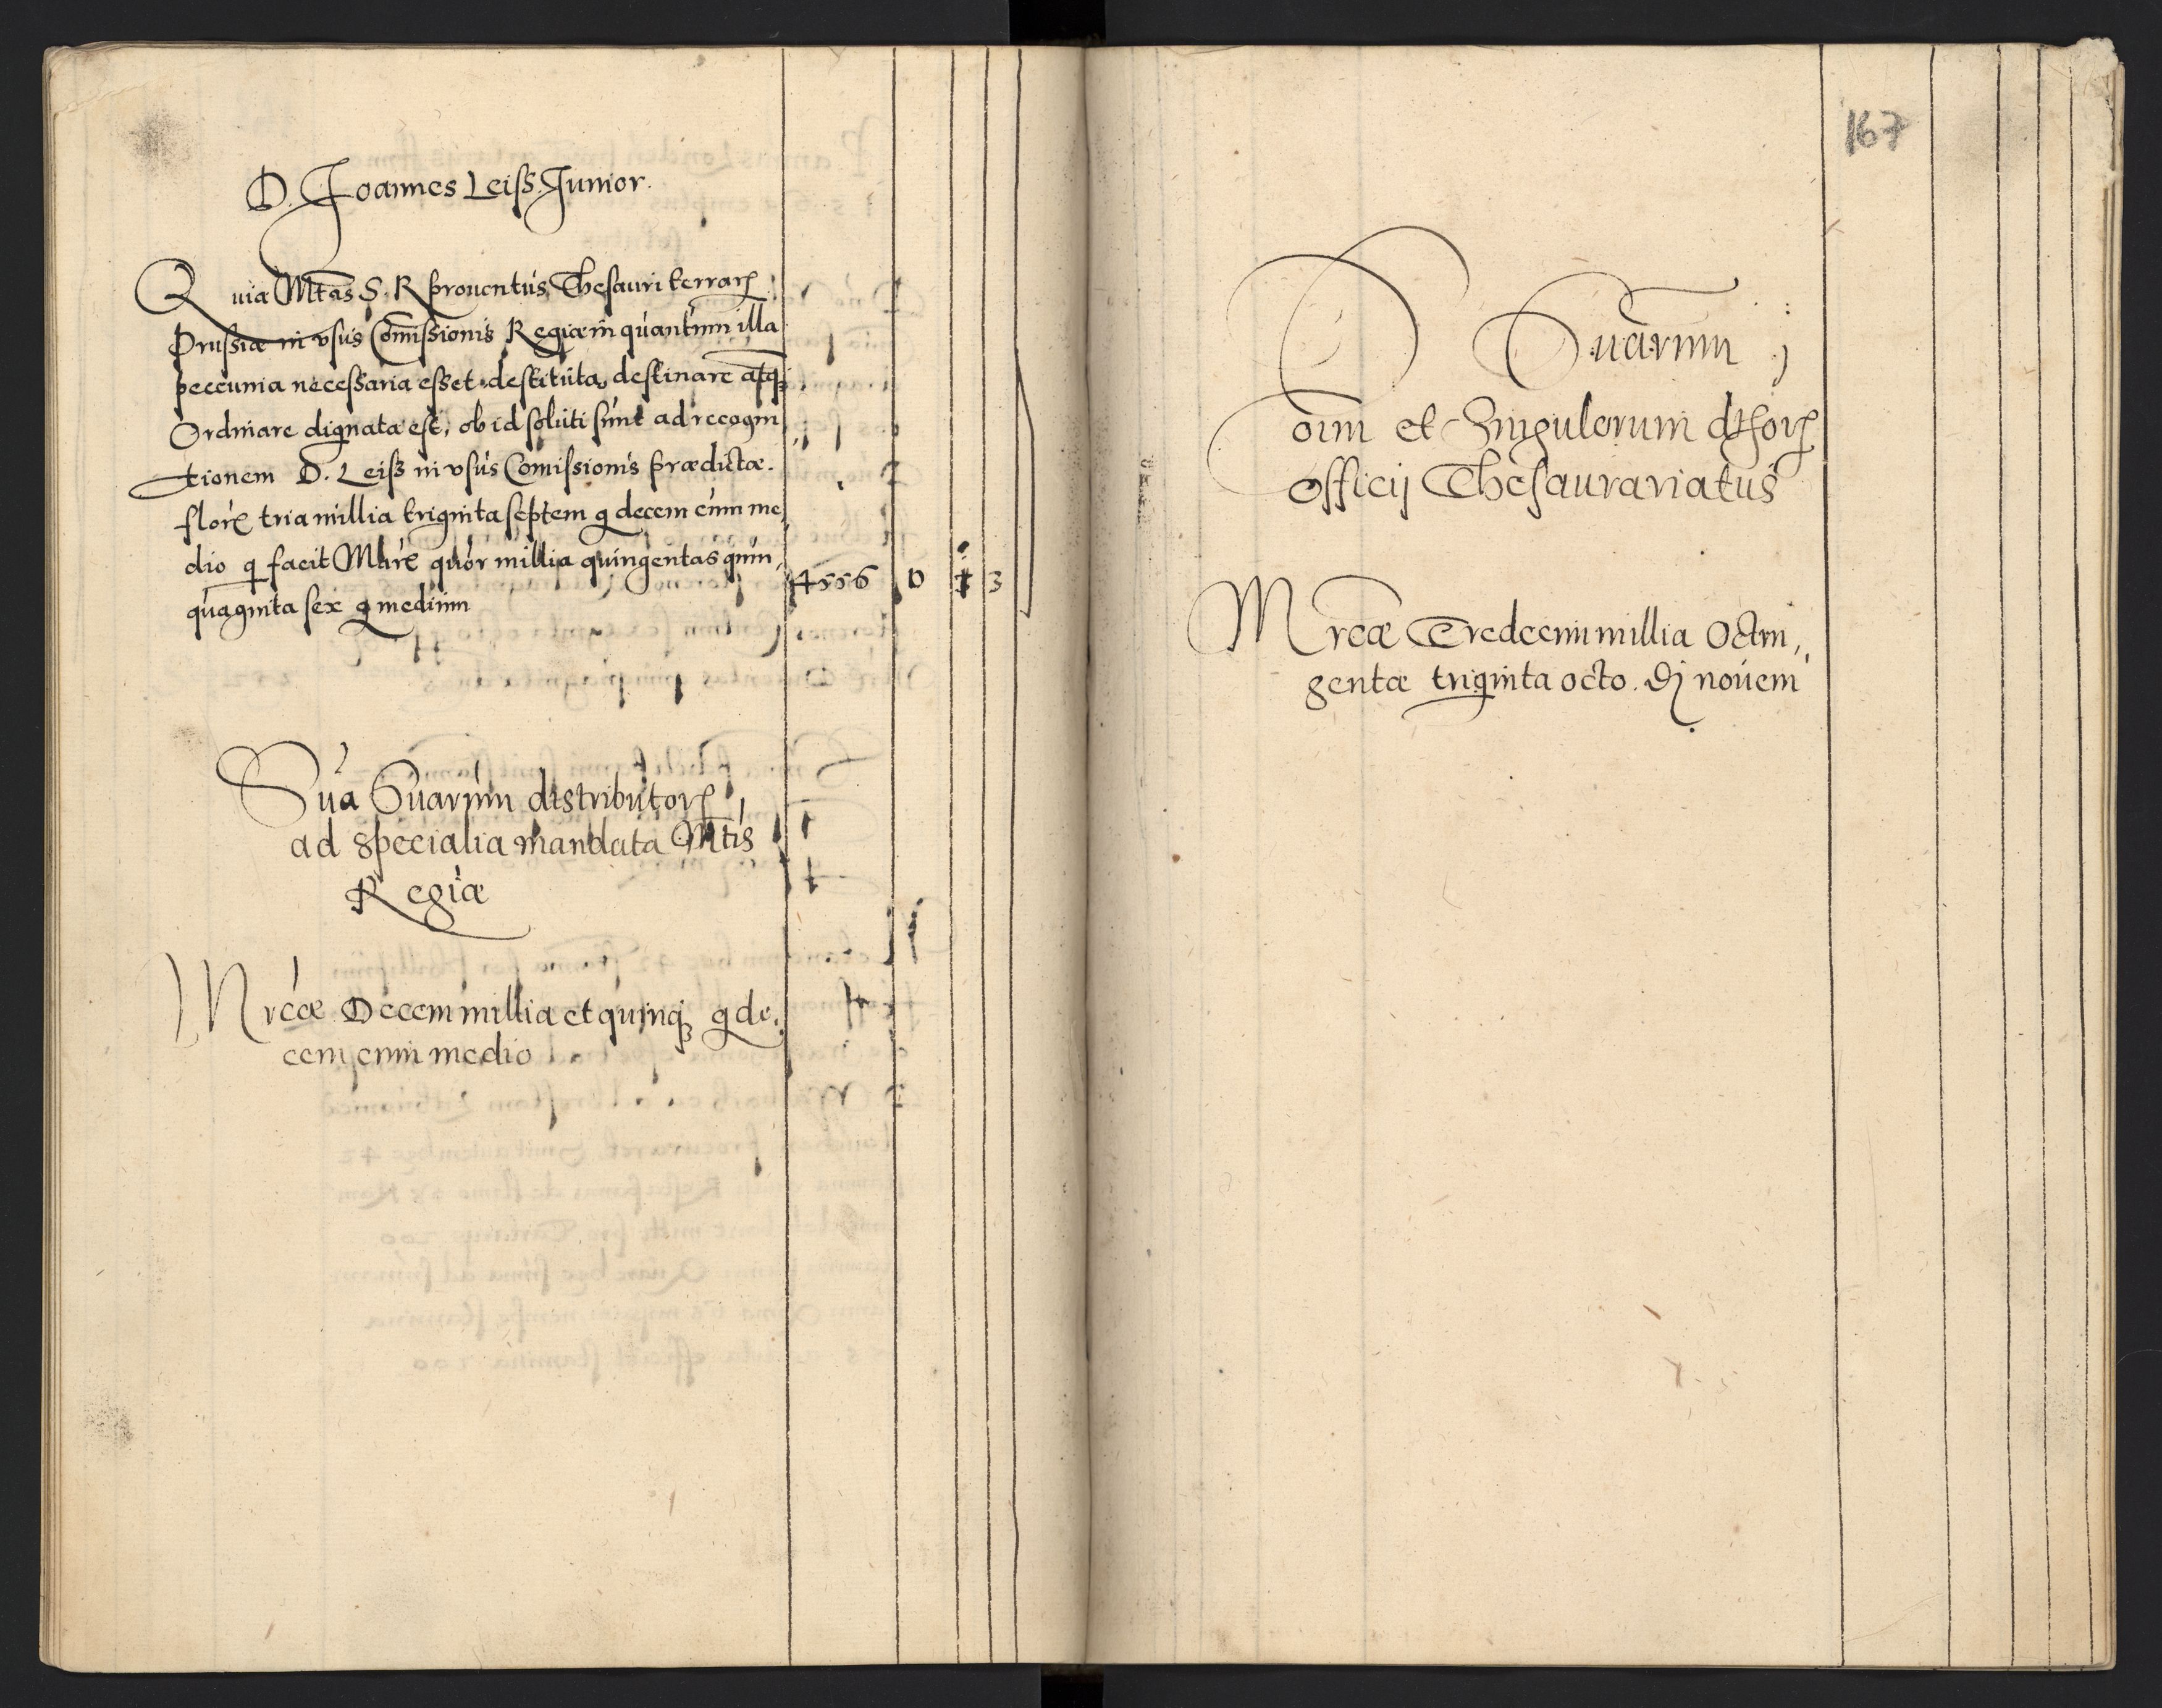 D. Joannes Leiss Junior.
Quia Mtas S. R prouentus Thesauri terrarꝝ
Prussiæ in vsus Comissionis Regiæ in quantum illa
peccunia necessaria esset destituta, destinare atqꝫ
Ordinare dignata est, ob id soluti sunt ad recogni
tionem D. Leiss in vsus Comissionis prædictæ.
florꝭ tria millia triginta septem g decem cum me
dio q facit Marꝭ quor millia quingentas quin,
quaginta sex g medium
4556 0 ½ 3
Sua Suarum distributorꝝ
ad specialia mandata Mtis
Regiæ
Mrcæ Decem millia et quinqꝫ g de,
cem cum medio
167
Suarum
oim et Singulorum
officij Thesaurariatus
Mrcæ Tredecim millia Octin,,
gentæ triginta octo. novem